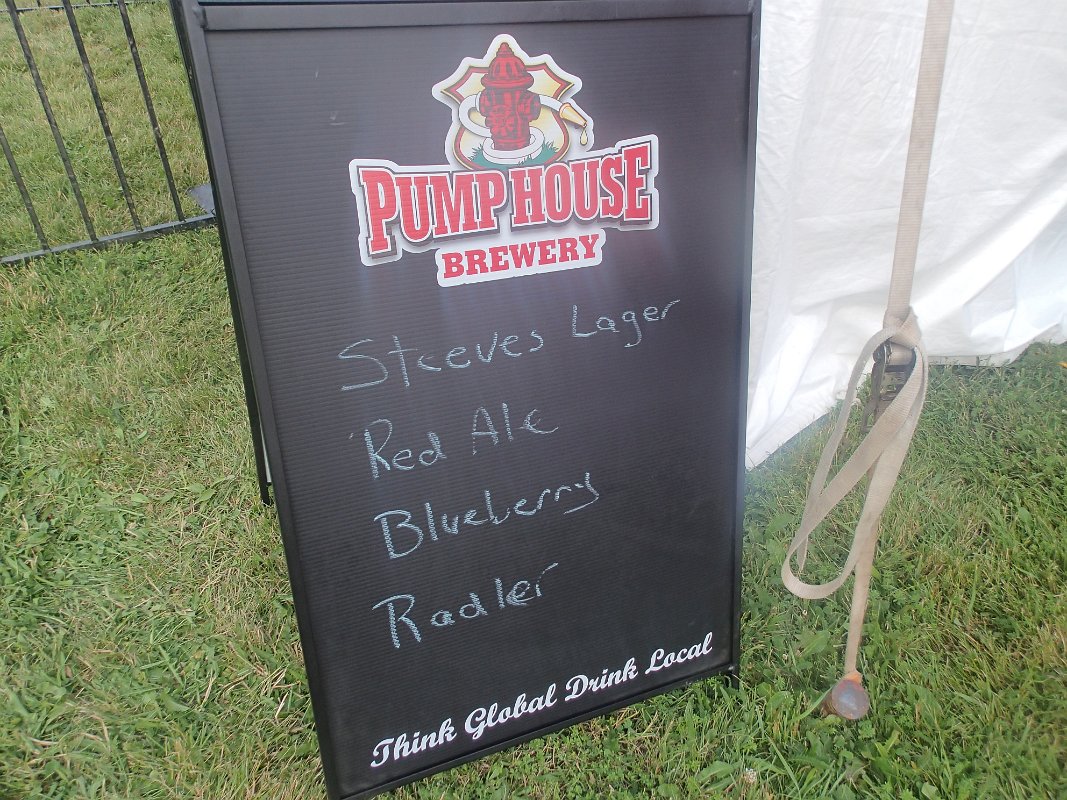 PUMP HOUSE
BREWERY
Steeves Lager
Red Ale
Blueberry
Radler
Think Global Drink Local